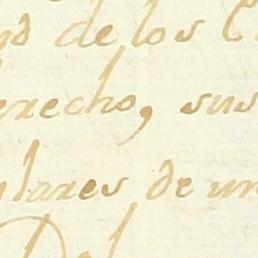 de los
erecho, sus
lares de un